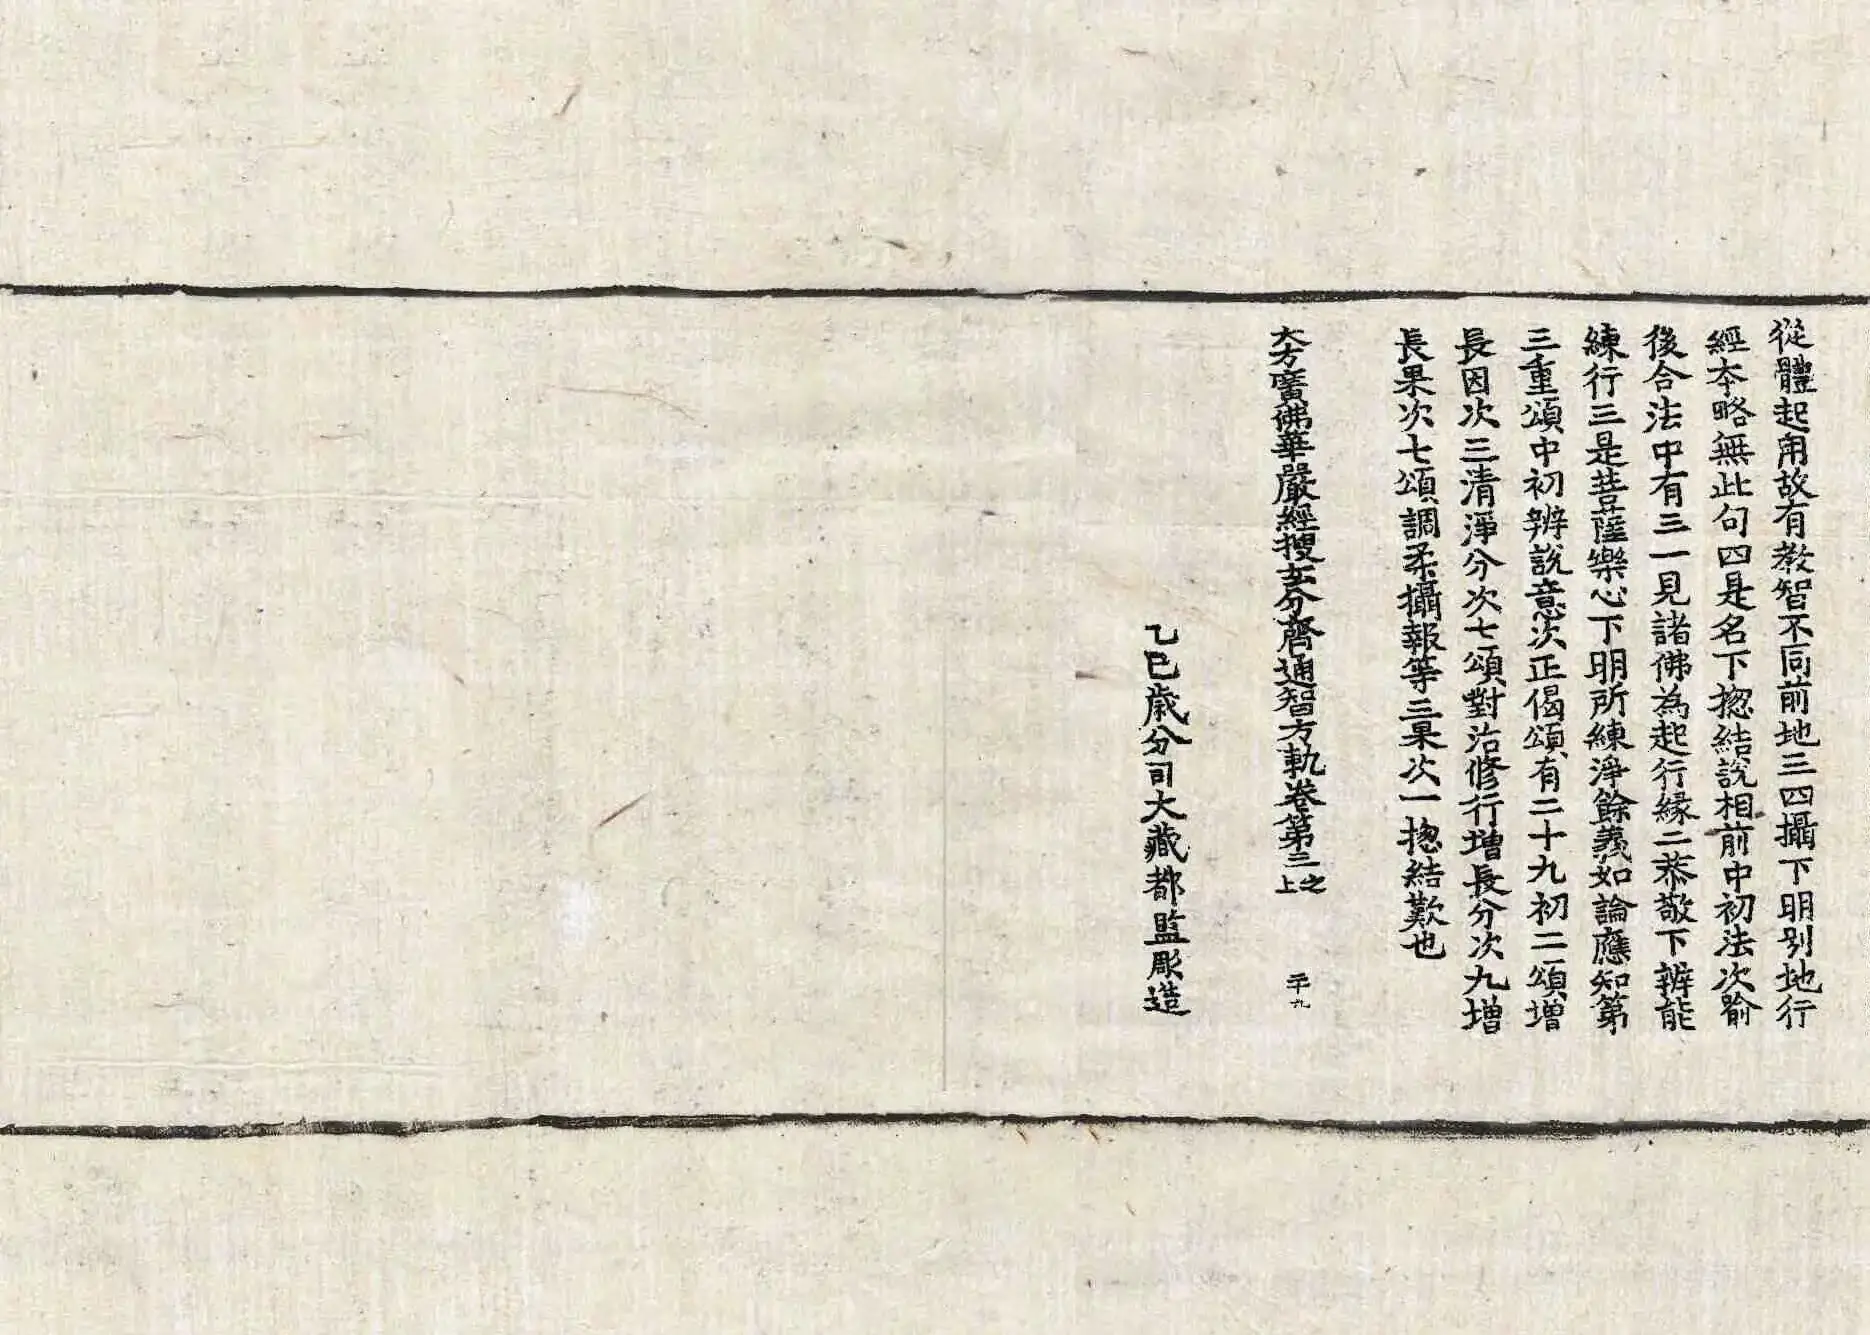 從體起用故有教智不同前地三四攝下明別地行
經本略無此句四是名下揔結說相前中初法次喻
後合法中有三一見諸佛為起行緣二恭敬下辨能
練行三是菩薩樂心下明所練淨餘義如論應知第
三重頌中初辨說意次正偈頌有二十九初二頌增
長因次三清淨分次七頌對治修行增長分次九增
長果次七頌調柔攝報等三果次一揔結歎也
大方廣佛華嚴經搜玄分齊通智方軌卷第三之上
二十九
乙巳歲分司大藏都監彫造